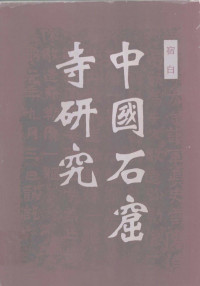 宿白
中國石窟
寺研究